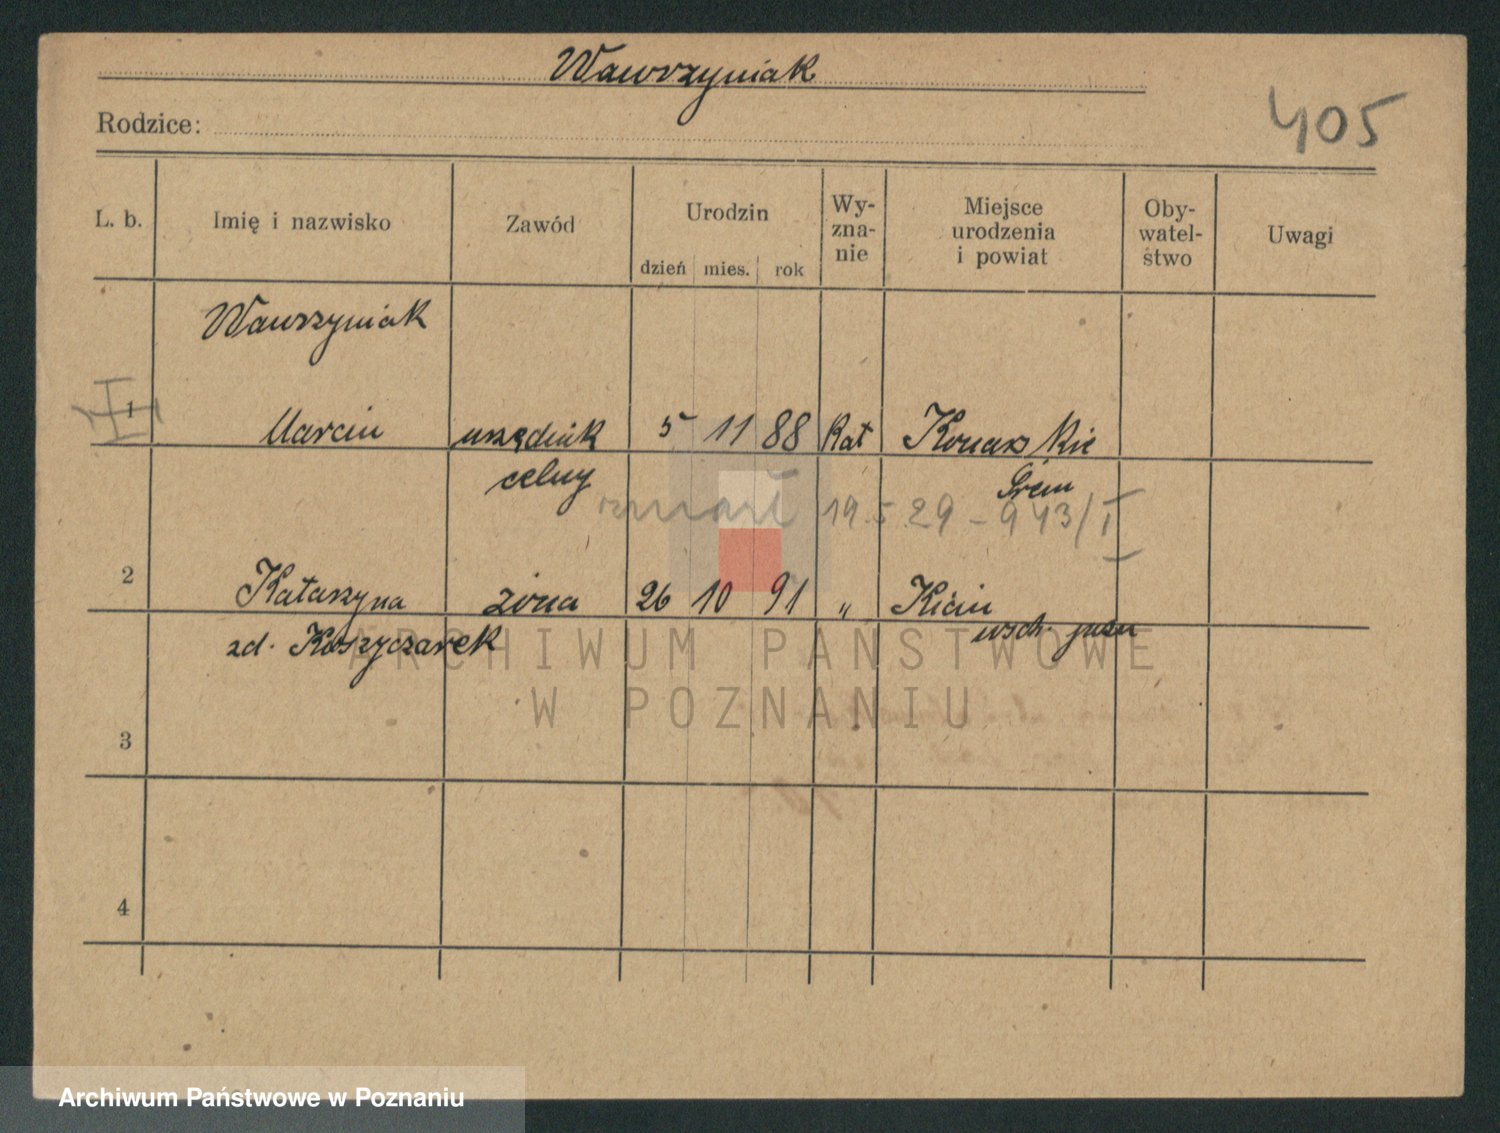 Wawrzyniak
405
Rodzice:
L. b. Imię i nazwisko Zawód Urodzin dzień mies. rok Wy-zna-nie Miejsce urodzenia i powiat Oby-watel-stwo Uwagi
Wawrzyniak
1 Marcin urzędnik 5 11 88 Kat
celny Śrem
zmarł 19.5.29 - 943/I
2 Katarzyna żona 26 10 91 " Kicin
zd. Koszyczarek wsch.
3
4
ARCHIWUM PAŃSTWOWE
W POZNANIU
Archiwum Państwowe w Poznaniu